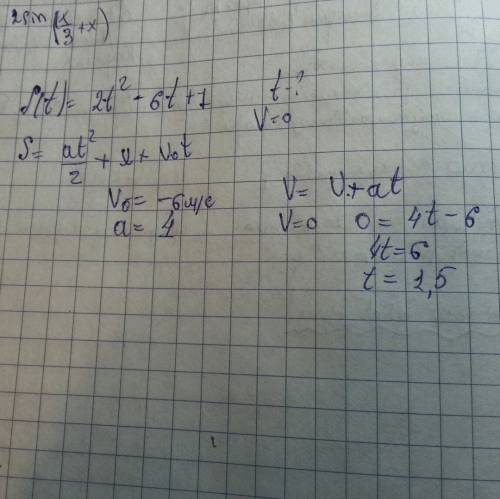 2sin(x/3+x)
S(t)= 2t² - 6t + 1
t-?
V=0
S= at²/2 + x + V₀t
V₀= -6 м/с
a= 4
V= V₀+at
V=0 0 = 4t - 6
4t=6
t = 1,5